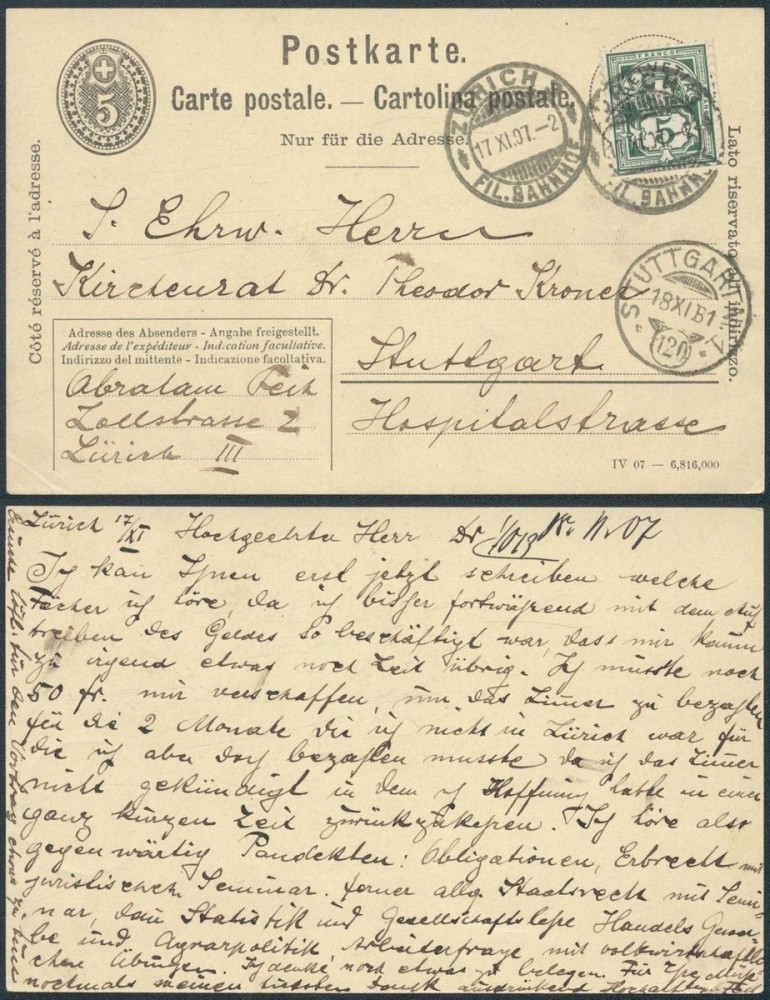 Postkarte.
Carte postale. — Cartolina postale.
Nur für die Adresse.
5
ZÜRICH
17 XI.07.–2
FIL. BAHNHOF
HELVETIA
5
FIL. BAHNHOF
Côté réservé à l'adresse.
Lato riservato all'indirizzo.
S. Ehrw. Herrn
Kirchenrat Dr. Theodor Kroner
STUTTGART
18 XI
120
Stuttgart
Hospitalstrasse
Adresse des Absenders - Angabe freigestellt.
Adresse de l'expéditeur - Indication facultative.
Indirizzo del mittente - Indicazione facoltativa.
Abraham
Zollstrasse 2
Zürich III
IV 07 — 6,816,000
Zürich 17/XI Hochgeehrter Herr Dr 07
Ich kan Ihnen erst jetzt schreiben welche
Fächer ich höre, da ich bisher fortwährend mit dem Auf
treiben des Geldes so beschäftigt war, dass mir kaum
zu irgend etwas noch Zeit übrig. Ich musste noch
50 fr. mir verschaffen, um das Zimer zu bezahlen
für die 2 Monate die ich nicht in Zürich war für
die ich aber doch bezahlen musste da ich das Zimer
nicht gekündigt in dem ich Hoffnung hatte in einer
ganz kurzen Zeit zurückzukehren. Ich höre also
gegenwärtig Pandekten: Obligationen, Erbrecht mit
juristischem Seminar. ferner allg. Staatsrecht mit Semi-
nar, dan Statistik und Gesellschaftslehre Handels Gewer
be und Agrarpolitik, Arbeiterfrage mit volkwirtschaftli
chen Übungen. Ich denke noch etwas zu belegen. Für Ihre
nochmals meinen tiefsten Dank ausdrückend
für den Vortrag etwas zu tun